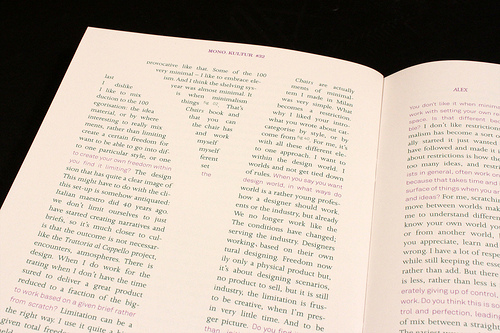 MONO.KULTUR #22
provocative like that. Some of the 100
very minimal – I like to embrace ele-
ism. And I think the shelving sys-
year was almost minimal. It
is when minimalism
things That's
Chairs book and
that you can
the chair has
and work
myself
myself
ferent
set
the
lass
I dislike
I like to mix
duction to the 100
egorisation: the idea
material, or by where
interesting to really mix
ments, rather than limiting
create a certain freedom for
me to be able to go into dif-
to one particular style, or one
to create your own freedom within
you find it limiting? The design
that has quite a clear image of
This might have to do with that
this set-up is somewhat antiquated:
Italian maestro did 40 years ago.
we don't limit ourselves to just
we started creating narratives and
briefs, so it's much closer to cul-
is that the outcome is not necessar-
like the Trattoria al Cappello project,
encounters, atmospheres. There is
design. When I do work for the
trating when I don't have the time
sured to deliver a great product
reduced to a fraction of the big-
to work based on a given brief rather
from scratch? Limitation can be a
the right way. I use it quite a lot
given total freedom
Chairs are actually
ments of minimal.
tem I made in Milan
was very simple. What
becomes a restriction.
why I liked your intro-
what you wrote about cat-
categorise by style, or by
come from. For me, it's
with all these different ele-
to one approach. I want to
within the design world. I
worlds and not get tied down
of rules. When you say you want
design world, in what ways do
world is a rather young profes-
how a designer should work.
We no longer work like the
The conditions have changed;
serving the industry. Designers
working, based on their own
tural designing. Freedom now
ily only a physical product but,
it's about designing scenarios,
no product to sell, but it is still
industry, the limitation is frus-
to be creative, when I'm pres-
in very little time, and to be
ger picture. Do you find
ALEX
You don't like it when minimal
work with setting your own re
lble? I don't like restrictions
malism has become a sort
ally started it just wanted
have followed and made it
about restrictions is how th
too many ideas, and restr
rats in general, often work
because that takes time and
surface of things when you a
and ideas? For me, scratchi
move between worlds mak
me to understand differen
know your own world you
or from another world,
you appreciate, learn and
wrong. I have a lot of resp
while still keeping the esse
rather than add. But there
is less, rather than less is
erately giving up of control,
work. Do you think this is so
trol and perfection, leading
of mix between a straight